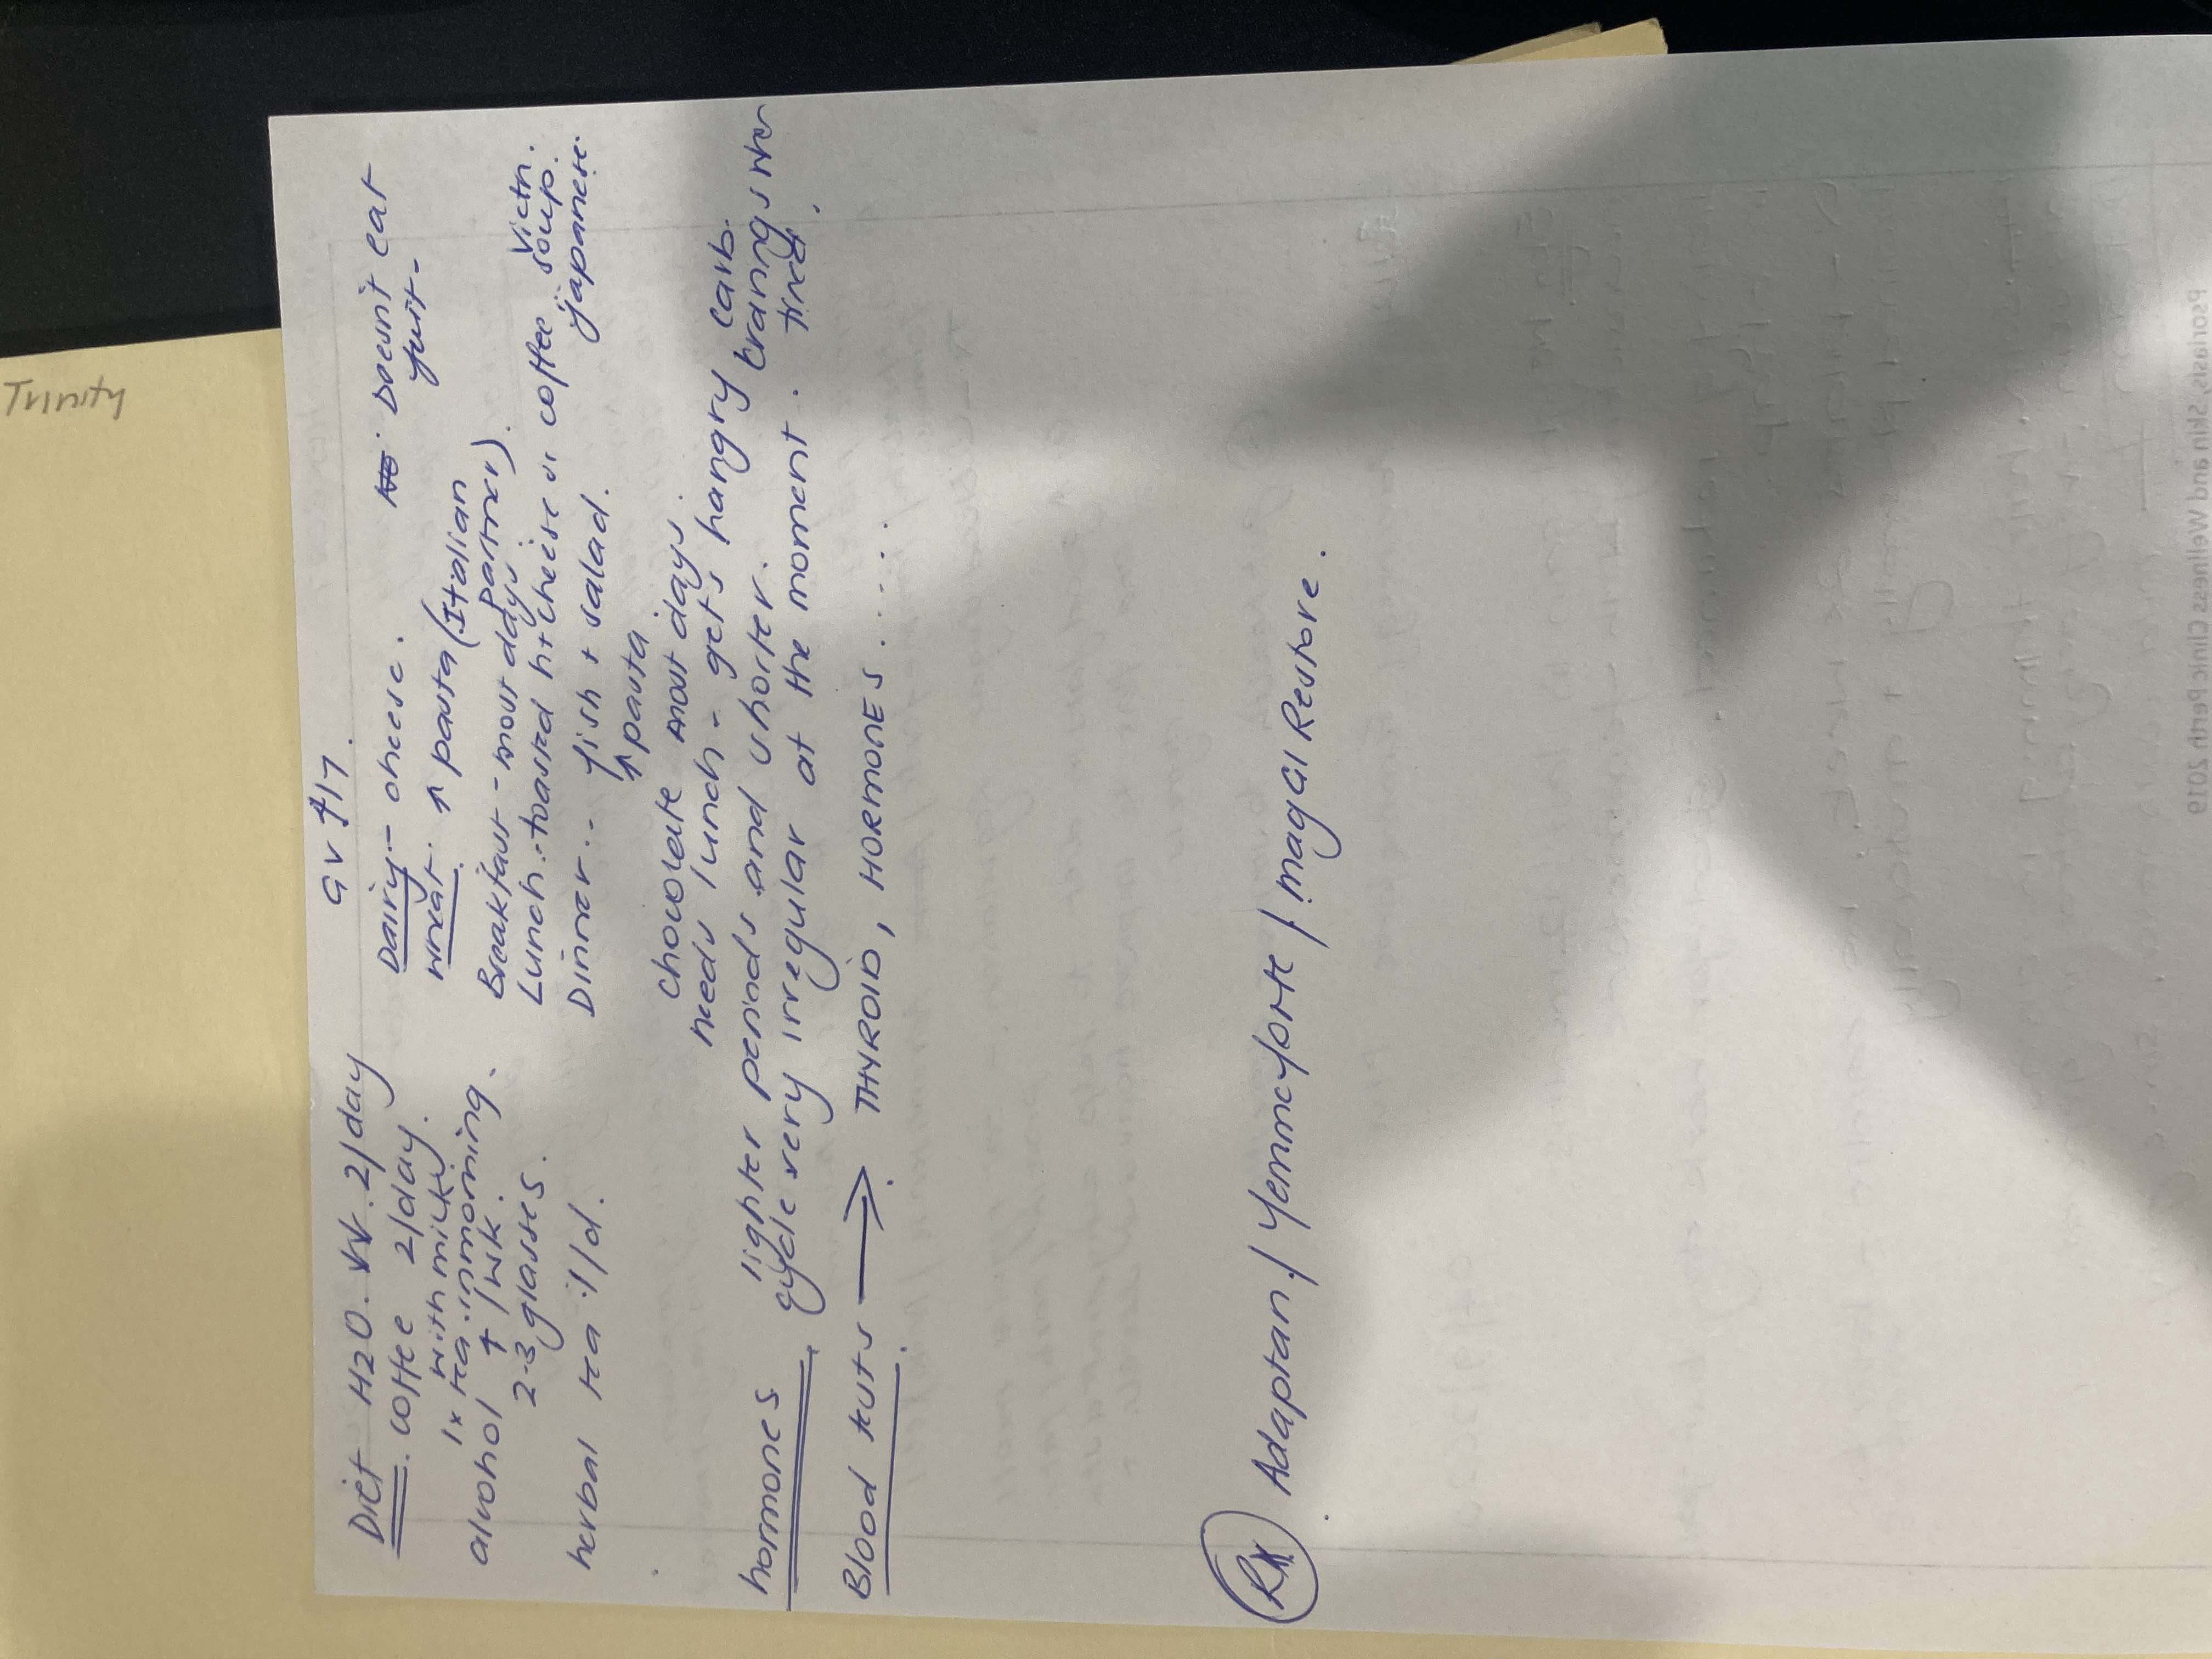 Trinity
Diet H2O. 2/day
coffee 2/day.
with milk
1x tea in morning.
alcohol /wk.
2-3 glasses.
herbal tea 1/d.
Dairy - cheese. Doesn't eat
fruit-
wheat. ↑ pasta (Italian
partner).
Breakfast - most days
Lunch - toasted h+cheese or coffee, Vietn.
soup.
japanese.
Dinner - fish + salad.
↑ pasta
chocolate most days.
needs lunch - gets hangry carb.
cravings when
tired.
hormones lighter periods and shorter.
cycle very irregular at the moment.
Blood tests → THYROID, HORMONES.....
Rx Adaptan / Femmeforte / mag GI Restore.
Psoriasis, Skin and Wellness Clinic Perth 2019